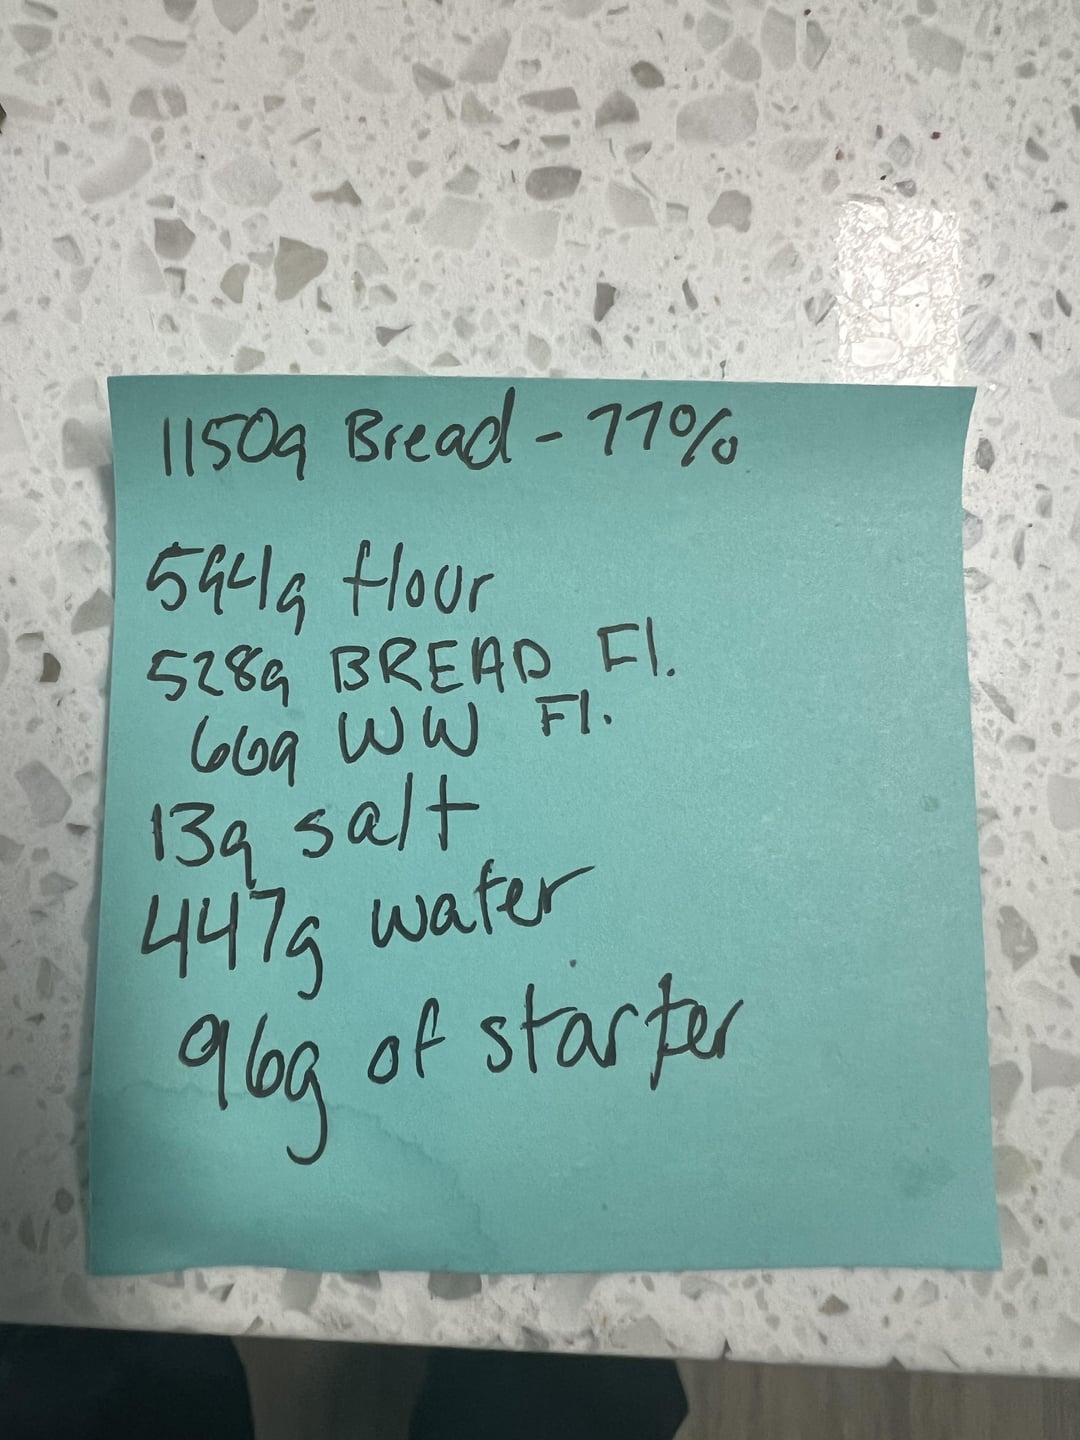 1150g Bread - 77%
594g flour
528g BREAD Fl.
66g WW Fl.
13g salt
447g water
96g of starter